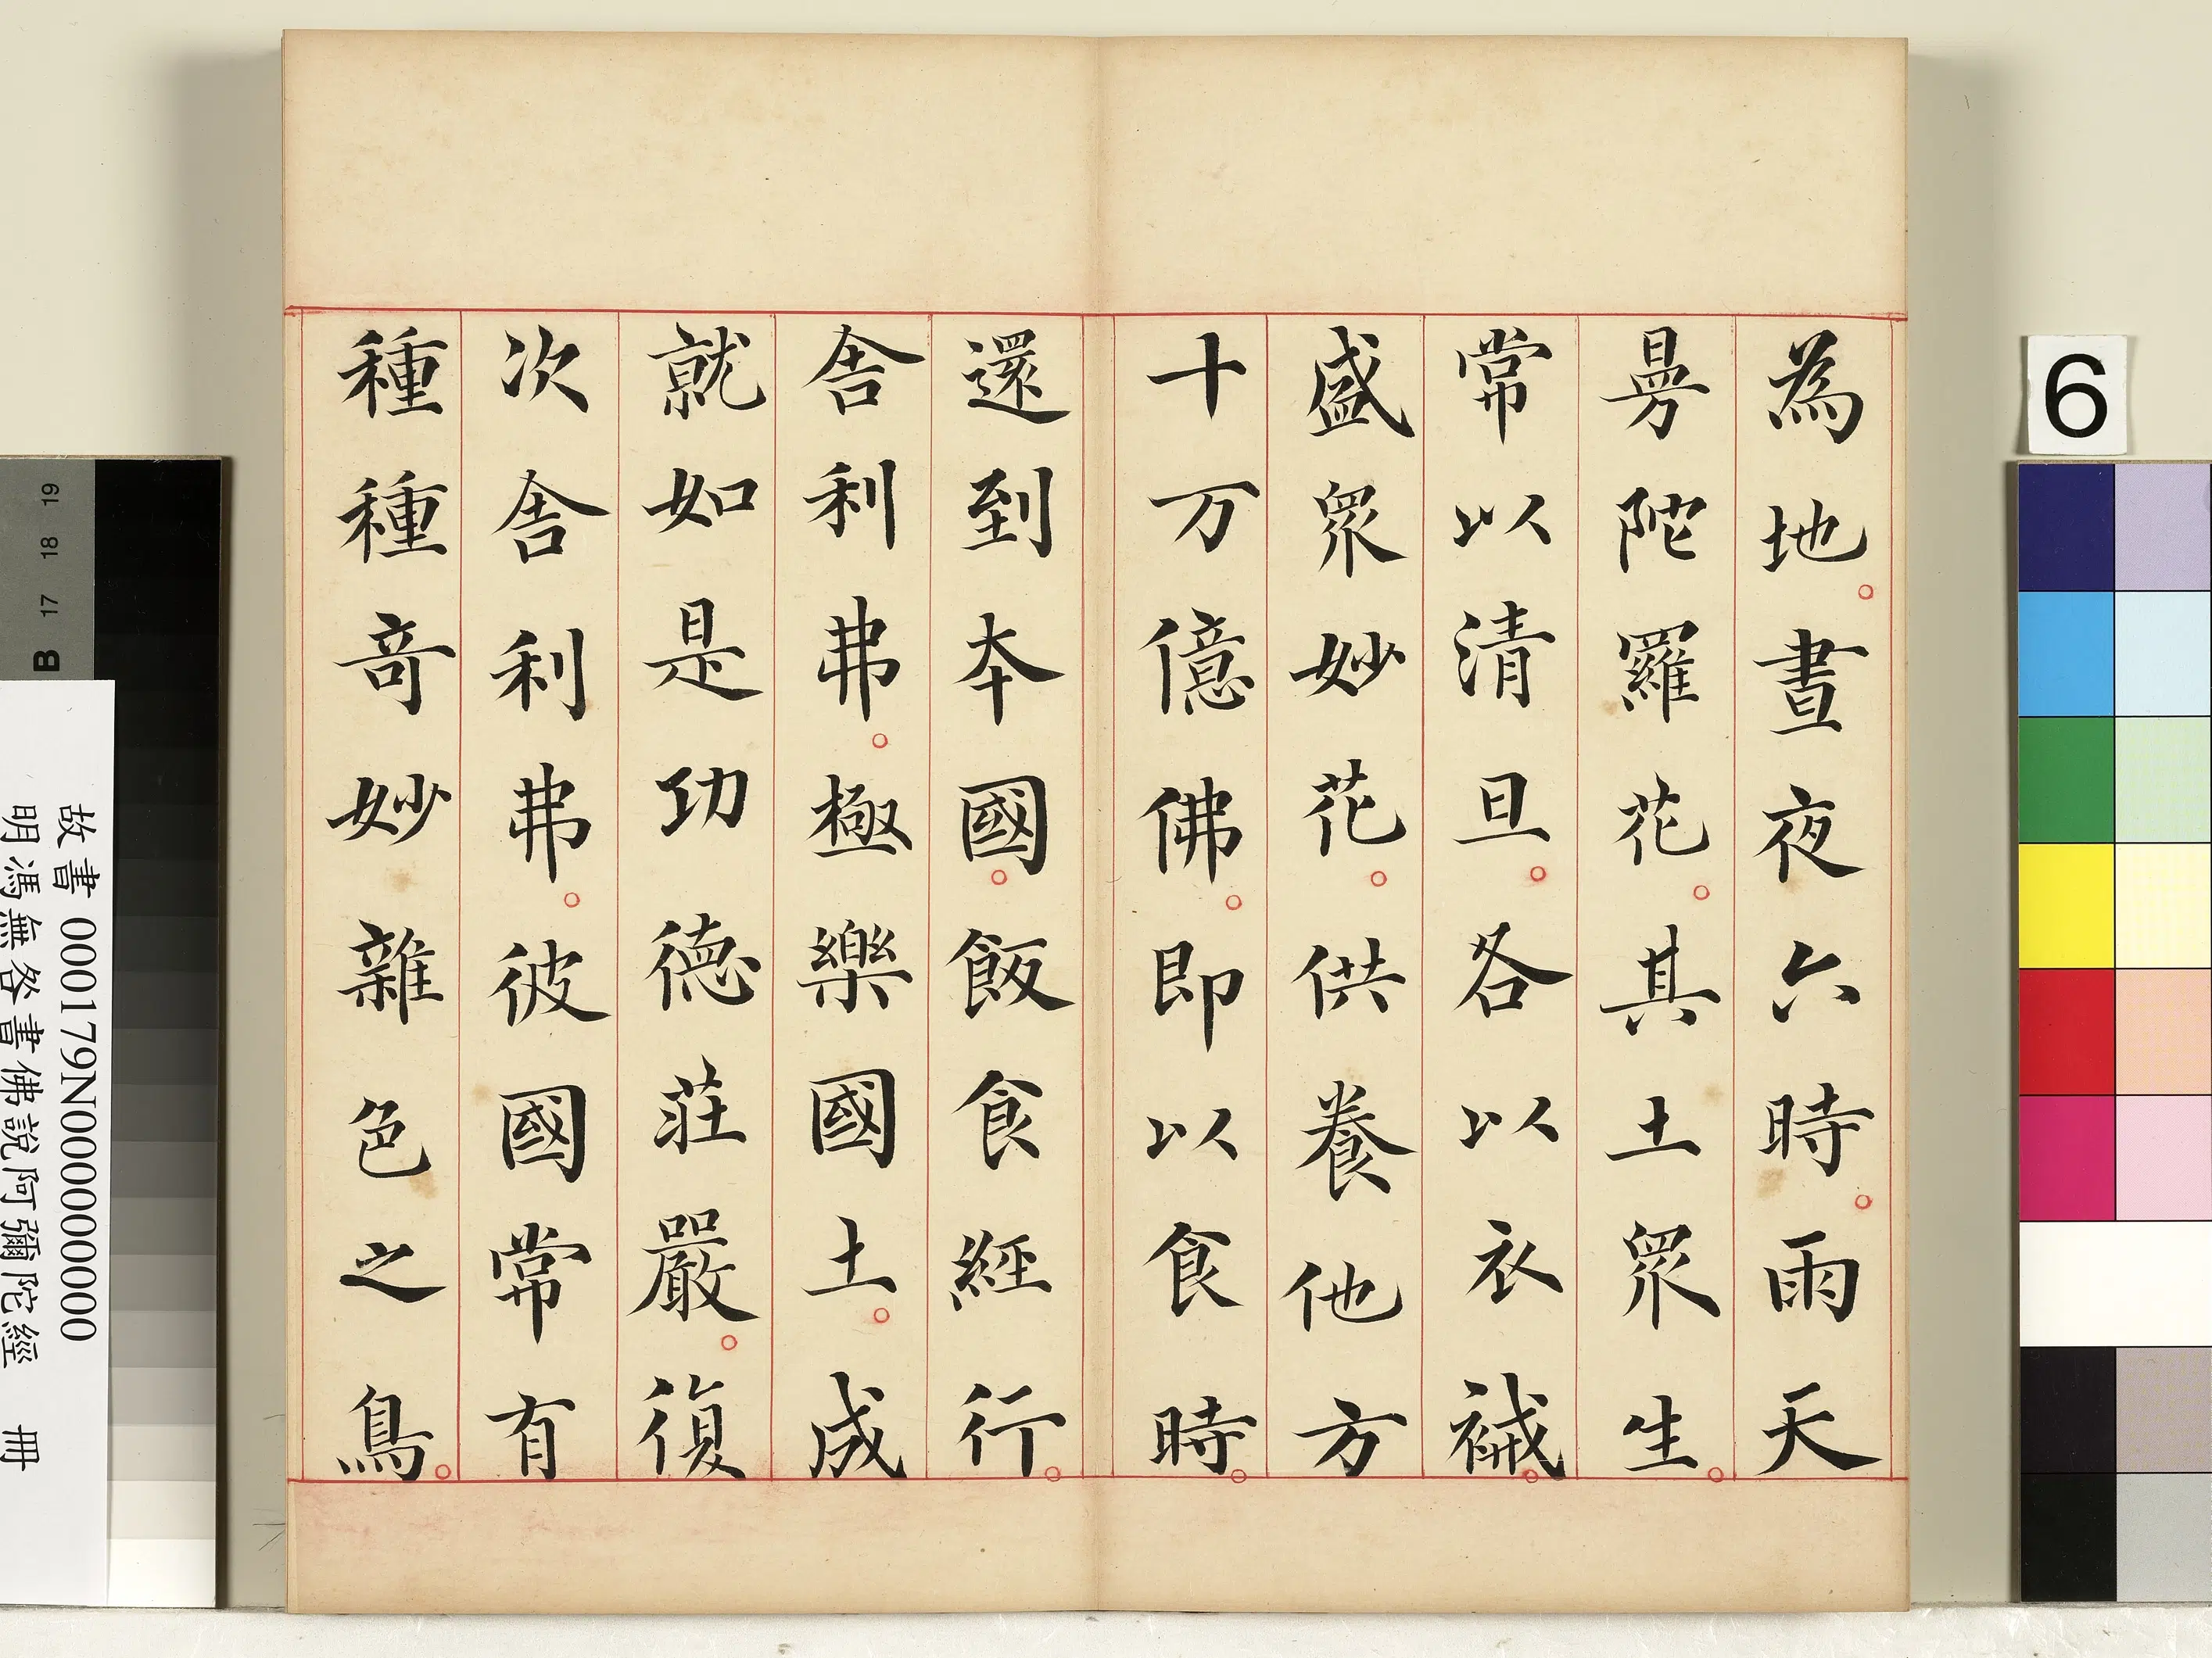 為地。晝夜六時。雨天
曼陀羅花。其土眾生。
常以清旦。各以衣裓。
盛眾妙花。供養他方
十万億佛。即以食時。
還到本國。飯食經行。
舍利弗。極樂國土。成
就如是功德莊嚴。復
次舍利弗。彼國常有
種種奇妙雜色之鳥。
6
19
18
17
B
故書 000179N000000000
明馮無咎書佛說阿彌陀經 冊